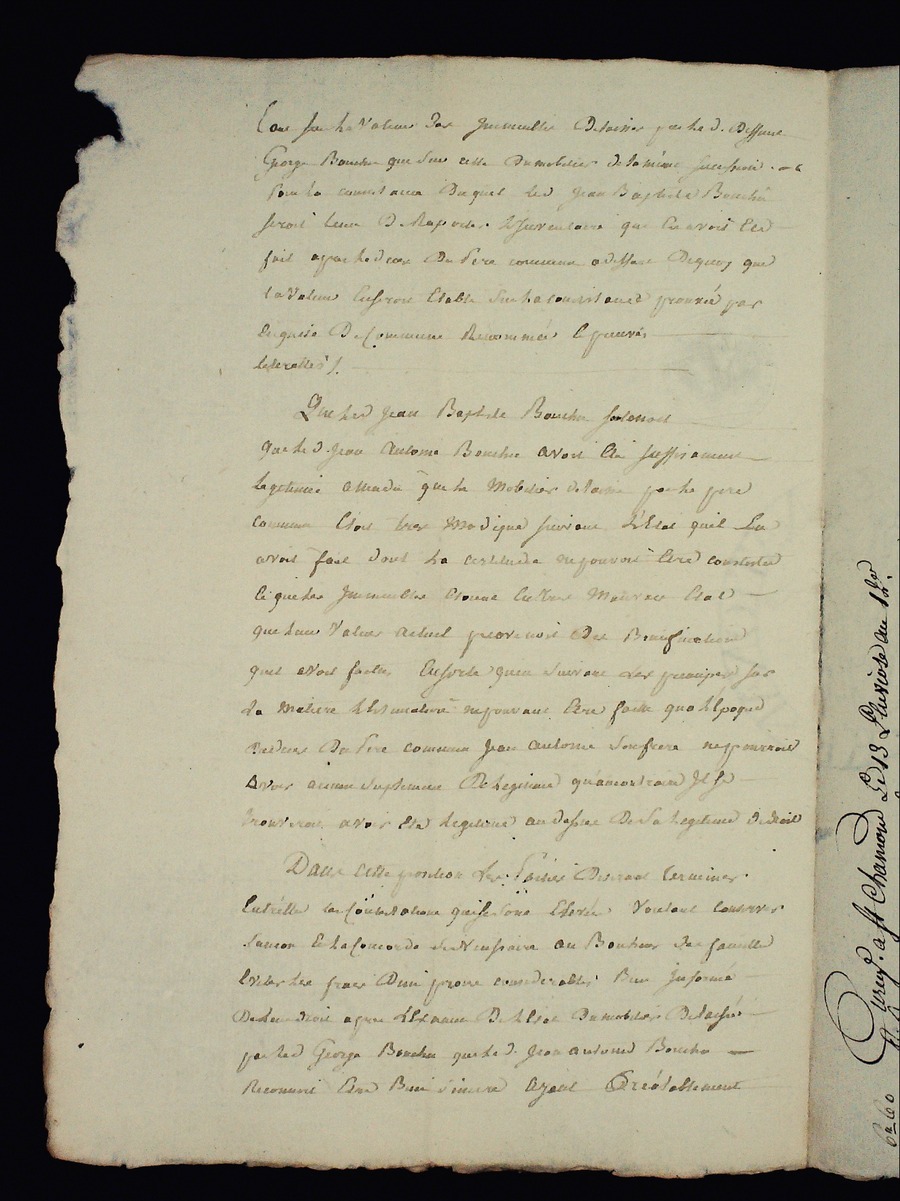 tant sur la Valeur des Immeubles Delaissés par led. Deffunt
George Bouchu que sur celle Du mobilier de la même succession
Pour la consistance Duquel led Jean Baptiste Bouchu
seroit tenu De Raporter L'Inventaire que en avoit Eté
fait apres le deces Du Pere commun a deffaut Dequoy que
La Valeur En seroit Etablie Sur la consistance prouvée par
Enquete De Commune Renommée
litteralles /.
Que led Jean Baptiste Bouchu soutenoit
que le d. Jean Antoine Bouchu avoit Eté suffisament
legitimé attendu que le Mobilier delaissé par le pere
commun Etoit tres Modique suivant L'Etat quil En
avoit fait dont La certitude ne pouvoit Etre contestée
Et que les Immeubles Etoient En tres Mauvais Etat
que leur Valeur actuel provenoit Des Bonification
quil avoit faittes Ensorte quen suivant Les principes sur
La Matiere L'Estimation ne pouvant Etre faitte qua L'Epoque
du deces Du Pere commun Jean Antoine Son frere ne pourroit
Avoir aucun suplement De legitime qu'au contraire Il se
trouveroit avoir Eté legitimé au dessus De Sa legitime De droit
Dans cette position Les Parties Desirant terminer
Entr'elles les Contestations qui se sont Elevées Voulant Conserver
L'union Et la Concorde si Necessaire au Bonheur Des familles
Eviter les frais D'un proces considerable Bien Informé
De leur droit apres L'Examen De L'Etat Du mobilier Delaissé
par led George Bouchu que led. Jean Antoine Bouchu
Reconnoit Etre Bien Sincere Ayant Préalablement
Enreg.t a St Chamond Le 13 Pluviose an